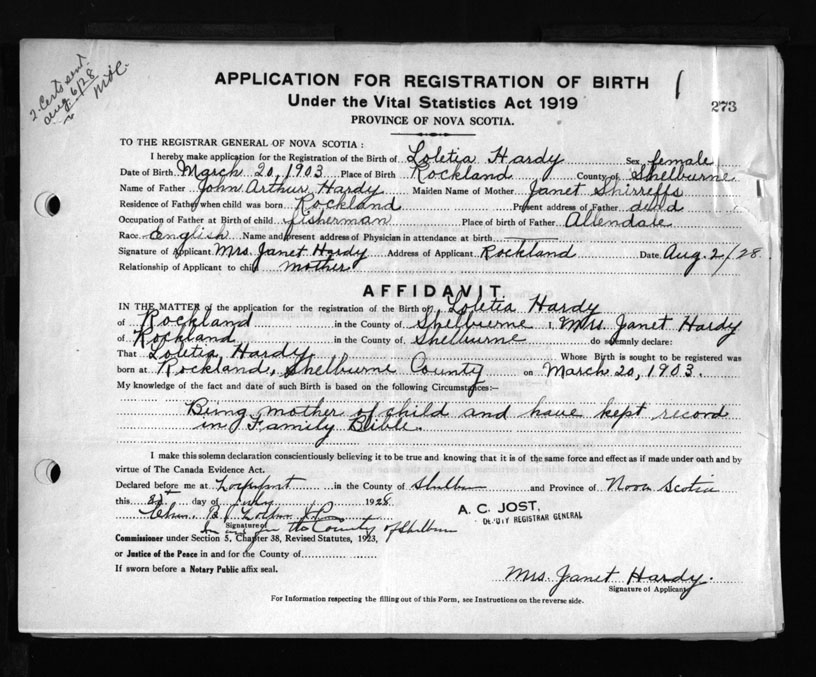 2 Certs sent.
Aug 6/28
APPLICATION FOR REGISTRATION OF BIRTH
Under the Vital Statistics Act 1919
273
PROVINCE OF NOVA SCOTIA.
TO THE REGISTRAR GENERAL OF NOVA SCOTIA :
I hereby make application for the Registration of the Birth of Loletia Hardy Sex female
Date of Birth March 20, 1903 Place of Birth Rockland County of Shelburne
Name of Father John Arthur Hardy Maiden Name of Mother Janet Shirreffs
Residence of Father when child was born Rockland Present address of Father dead
Occupation of Father at Birth of child fisherman Place of birth of Father Allendale
Race English Name and present address of Physician in attendance at birth
Signature of Applicant Mrs. Janet Hardy Address of Applicant Rockland Date Aug. 2/28.
Relationship of Applicant to child mother
AFFIDAVIT
IN THE MATTER of the application for the registration of the Birth of Loletia Hardy
of Rockland in the County of Shelburne I, Mrs. Janet Hardy
of Rockland in the County of Shelburne do solemnly declare:
That Loletia Hardy Whose Birth is sought to be registered was
born at Rockland, Shelburne County on March 20, 1903.
My knowledge of the fact and date of such Birth is based on the following Circumstances:—
Being mother of child and have kept record
in Family Bible.
I make this solemn declaration conscientiously believing it to be true and knowing that it is of the same force and effect as if made under oath and by
virtue of The Canada Evidence Act.
Declared before me at in the County of and Province of Nova Scotia
this day of July 1928.
A. C. JOST,
DEPUTY REGISTRAR GENERAL
Signature of
In and for the County of Shelburne
Commissioner under Section 5, Chapter 38, Revised Statutes, 1923,
or Justice of the Peace in and for the County of
If sworn before a Notary Public affix seal.
Mrs. Janet Hardy.
Signature of Applicant
For Information respecting the filling out of this Form, see Instructions on the reverse side.